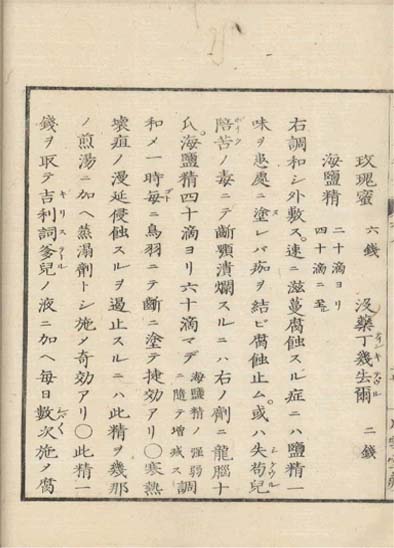 玫瑰蜜 六錢 沒藥丁幾去爾 二錢
海鹽精 二十滴ヨリ 四十滴ニ至ル
右調和シ外敷ス。速ニ滋蔓腐蝕スル症ニハ鹽精一
味ヲ患處ニ塗レバ痂ヲ結ビ腐蝕止ム。或ハ失苟兒
陪苦ノ毒ニテ齗顎潰爛スルニハ右ノ劑ニ龍腦十
氏。海鹽精四十滴ヨリ六十滴マデ 海鹽精ノ强弱ニ隨テ增減ス 調
和メ一時每ニ鳥羽ニテ齗ニ塗テ捷効アリ〇寒熱
壞疽ノ漫延侵蝕スルヲ遏止スルニハ此精ヲ幾那
ノ煎湯ニ加ヘ蒸溻劑トシ施メ奇効アリ〇此精一
錢ヲ取テ吉利詞爹兒ノ液ニ加ヘ每日數次施メ腐